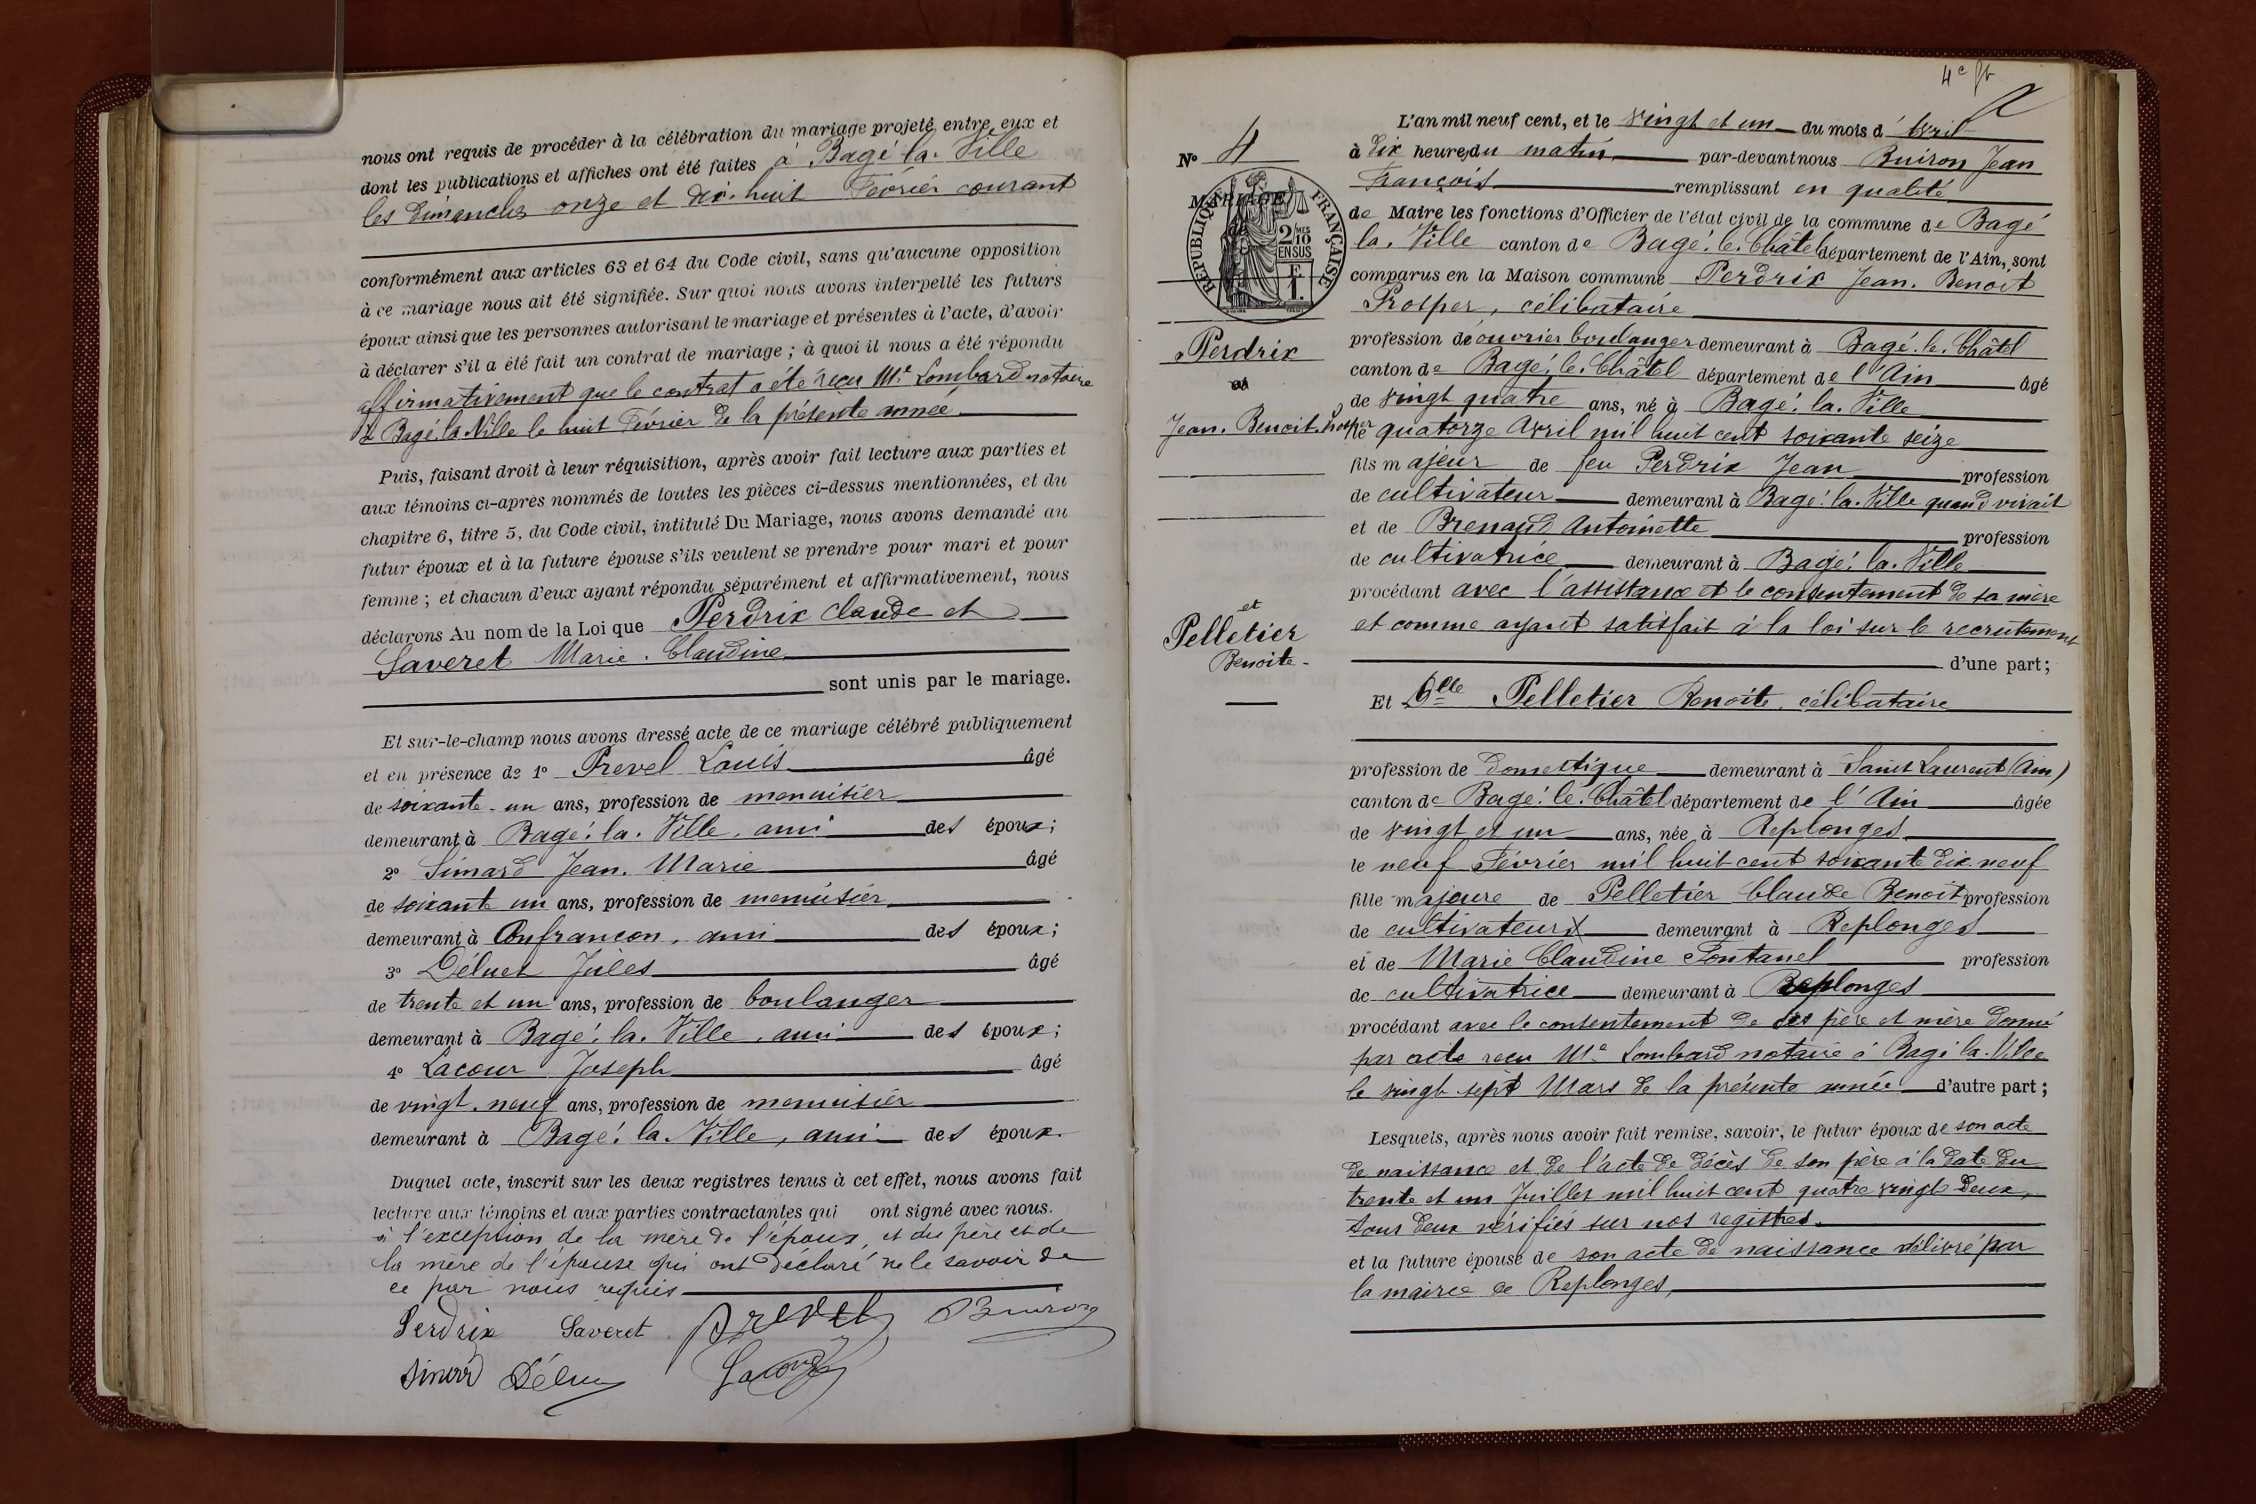 nous ont requis de procéder à la célébration du mariage projeté entre eux et
dont les publications et affiches ont été faites à Bagé-la-Ville
les Dimanches onze et dix-huit Février courant
conformément aux articles 63 et 64 du Code civil, sans qu'aucune opposition
à ce mariage nous ait été signifiée. Sur quoi nous avons interpellé les futurs
époux ainsi que les personnes autorisant le mariage et présentes à l'acte, d'avoir
à déclarer s'il a été fait un contrat de mariage ; à quoi il nous a été répondu
affirmativement que le contrat a été reçu Me Lombard notaire
à Bagé-la-Ville le huit Février de la présente année
Puis, faisant droit à leur réquisition, après avoir fait lecture aux parties et
aux témoins ci-après nommés de toutes les pièces ci-dessus mentionnées, et du
chapitre 6, titre 5, du Code civil, intitulé Du Mariage, nous avons demandé au
futur époux et à la future épouse s'ils veulent se prendre pour mari et pour
femme ; et chacun d'eux ayant répondu séparément et affirmativement, nous
déclarons Au nom de la Loi que Perdrix Claude et
Saveret Marie-Claudine
sont unis par le mariage.
Et sur-le-champ nous avons dressé acte de ce mariage célébré publiquement
et en présence de 1° Prevel Louis âgé
de soixante-un ans, profession de menuisier
demeurant à Bagé-la-Ville, ami des époux ;
2° Simard Jean-Marie âgé
de soixante un ans, profession de menuisier
demeurant à Confrançon, ami des époux ;
3° Déluet Jules âgé
de trente et un ans, profession de boulanger
demeurant à Bagé-la-Ville, ami des époux ;
4° Lacour Joseph âgé
de vingt-neuf ans, profession de menuisier
demeurant à Bagé-la-Ville, ami des époux.
Duquel acte, inscrit sur les deux registres tenus à cet effet, nous avons fait
lecture aux témoins et aux parties contractantes qui ont signé avec nous.
à l'exception de la mère de l'époux, et du père et de
la mère de l'épouse qui ont déclaré ne le savoir de
ce par nous requis
Perdrix Saveret Prevel Buiron
Simard Lacour
4e
N° 4
MARIAGE
de
RÉPUBLIQUE FRANÇAISE
2 MES
10
EN SUS
1 F.
Perdrix
Jean-Benoit Prosper
et
Pelletier
Benoite
L'an mil neuf cent, et le vingt et un du mois d'Avril
à dix heures du matin, par-devant nous Buiron Jean
François remplissant en qualité
de Maire les fonctions d'Officier de l'état civil de la commune de Bagé
la-Ville canton de Bagé-le-Châtel département de l'Ain, sont
comparus en la Maison commune Perdrix Jean-Benoit
Prosper, célibataire
profession de ouvrier boulanger demeurant à Bagé-le-Châtel
canton de Bagé-le-Châtel département de l'Ain âgé
de vingt quatre ans, né à Bagé-la-Ville
le quatorze Avril mil huit cent soixante seize
fils majeur de feu Perdrix Jean profession
de cultivateur demeurant à Bagé-la-Ville quand vivait
et de Brenaud Antoinette profession
de cultivatrice demeurant à Bagé-la-Ville
procédant avec l'assistance et le consentement de sa mère
et comme ayant satisfait à la loi sur le recrutement
d'une part ;
Et Dlle Pelletier Benoite, célibataire
profession de Domestique demeurant à Saint Laurent (Ain)
canton de Bagé-le-Châtel département de l'Ain âgée
de vingt et un ans, née à Replonges
le neuf Février mil huit cent soixante dix-neuf
fille majeure de Pelletier Claude Benoit profession
de cultivateur demeurant à Replonges
et de Marie Claudine Fontanel profession
de cultivatrice demeurant à Replonges
procédant avec le consentement de ses père et mère donné
par acte reçu Me Lombard notaire à Bagé-la-Ville
le vingt-sept Mars de la présente année d'autre part ;
Lesquels, après nous avoir fait remise, savoir, le futur époux de son acte
de naissance et de l'acte de décès de son père à la date du
trente et un Juillet mil huit cent quatre vingt deux,
tous deux vérifiés sur nos registres.
et la future épouse de son acte de naissance délivré par
la mairie de Replonges,